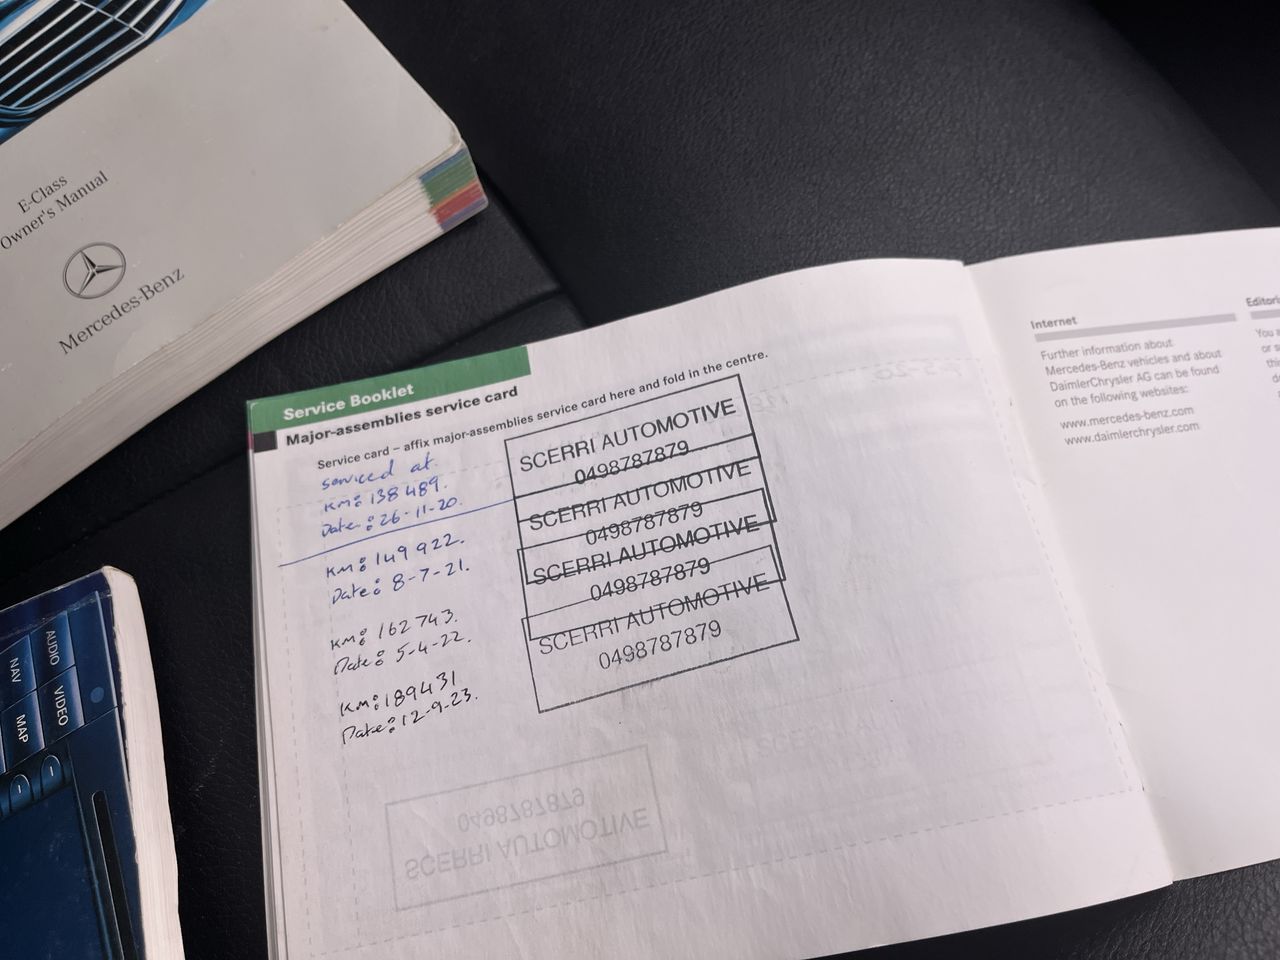 E-Class
Owner's Manual
Mercedes-Benz
Service Booklet
Major-assemblies service card
Service card – affix major-assemblies service card here and fold in the centre.
serviced at
KM: 138489.
Date: 26-11-20.
KM: 149922.
Date: 8-7-21.
KM: 162743.
Date: 5-4-22.
KM: 189431
Date: 12-9-23.
SCERRI AUTOMOTIVE
0498787879
SCERRI AUTOMOTIVE
0498787879
SCERRI AUTOMOTIVE
0498787879
SCERRI AUTOMOTIVE
0498787879
0498787879
SCERRI AUTOMOTIVE
Internet
Further information about
Mercedes-Benz vehicles and about
DaimlerChrysler AG can be found
on the following websites:
www.mercedes-benz.com
www.daimlerchrysler.com
AUDIO
VIDEO
NAV
MAP